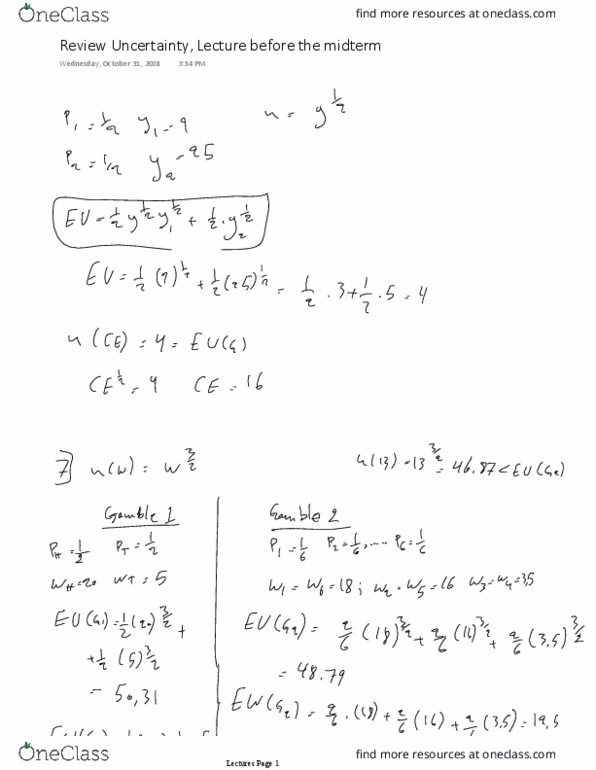 OneClass find more resources at oneclass.com
Review Uncertainty, Lecture before the midterm
Wednesday, October 31, 2018 3:34 PM
P₁ = 1/2 y₁ = 9 u = y^{1/2}
P₂ = 1/2 y₂ = 25
EU = 1/2 y^{1/2} y₁^{1/2} + 1/2 · y₂^{1/2}
EU = 1/2 (9)^{1/2} + 1/2 (25)^{1/2} = 1/2 · 3 + 1/2 · 5 = 4
u(CE) = 4 = EU(G)
CE^{1/2} = 4 CE = 16
7] u(w) = w^{3/2} u(13) = 13^{3/2} = 46.87 < EU(G₂)
Gamble 1
P_H = 1/2 P_T = 1/2
W_H = 20 W_T = 5
EU(G₁) = 1/2 (20)^{3/2} +
+ 1/2 (5)^{3/2}
= 50,31
Gamble 2
P₁ = 1/6 P₂ = 1/6, ... P₆ = 1/6
W₁ = W₆ = 18; W₂ = W₅ = 16 W₃ = W₄ = 3,5
EU(G₂) = 2/6 (18)^{3/2} + 2/6 (16)^{3/2} + 2/6 (3.5)^{3/2}
= 48.79
EW(G₂) = 2/6 · (18) + 2/6 (16) + 2/6 (3.5) = 12,5
Lectures Page 1
OneClass find more resources at oneclass.com